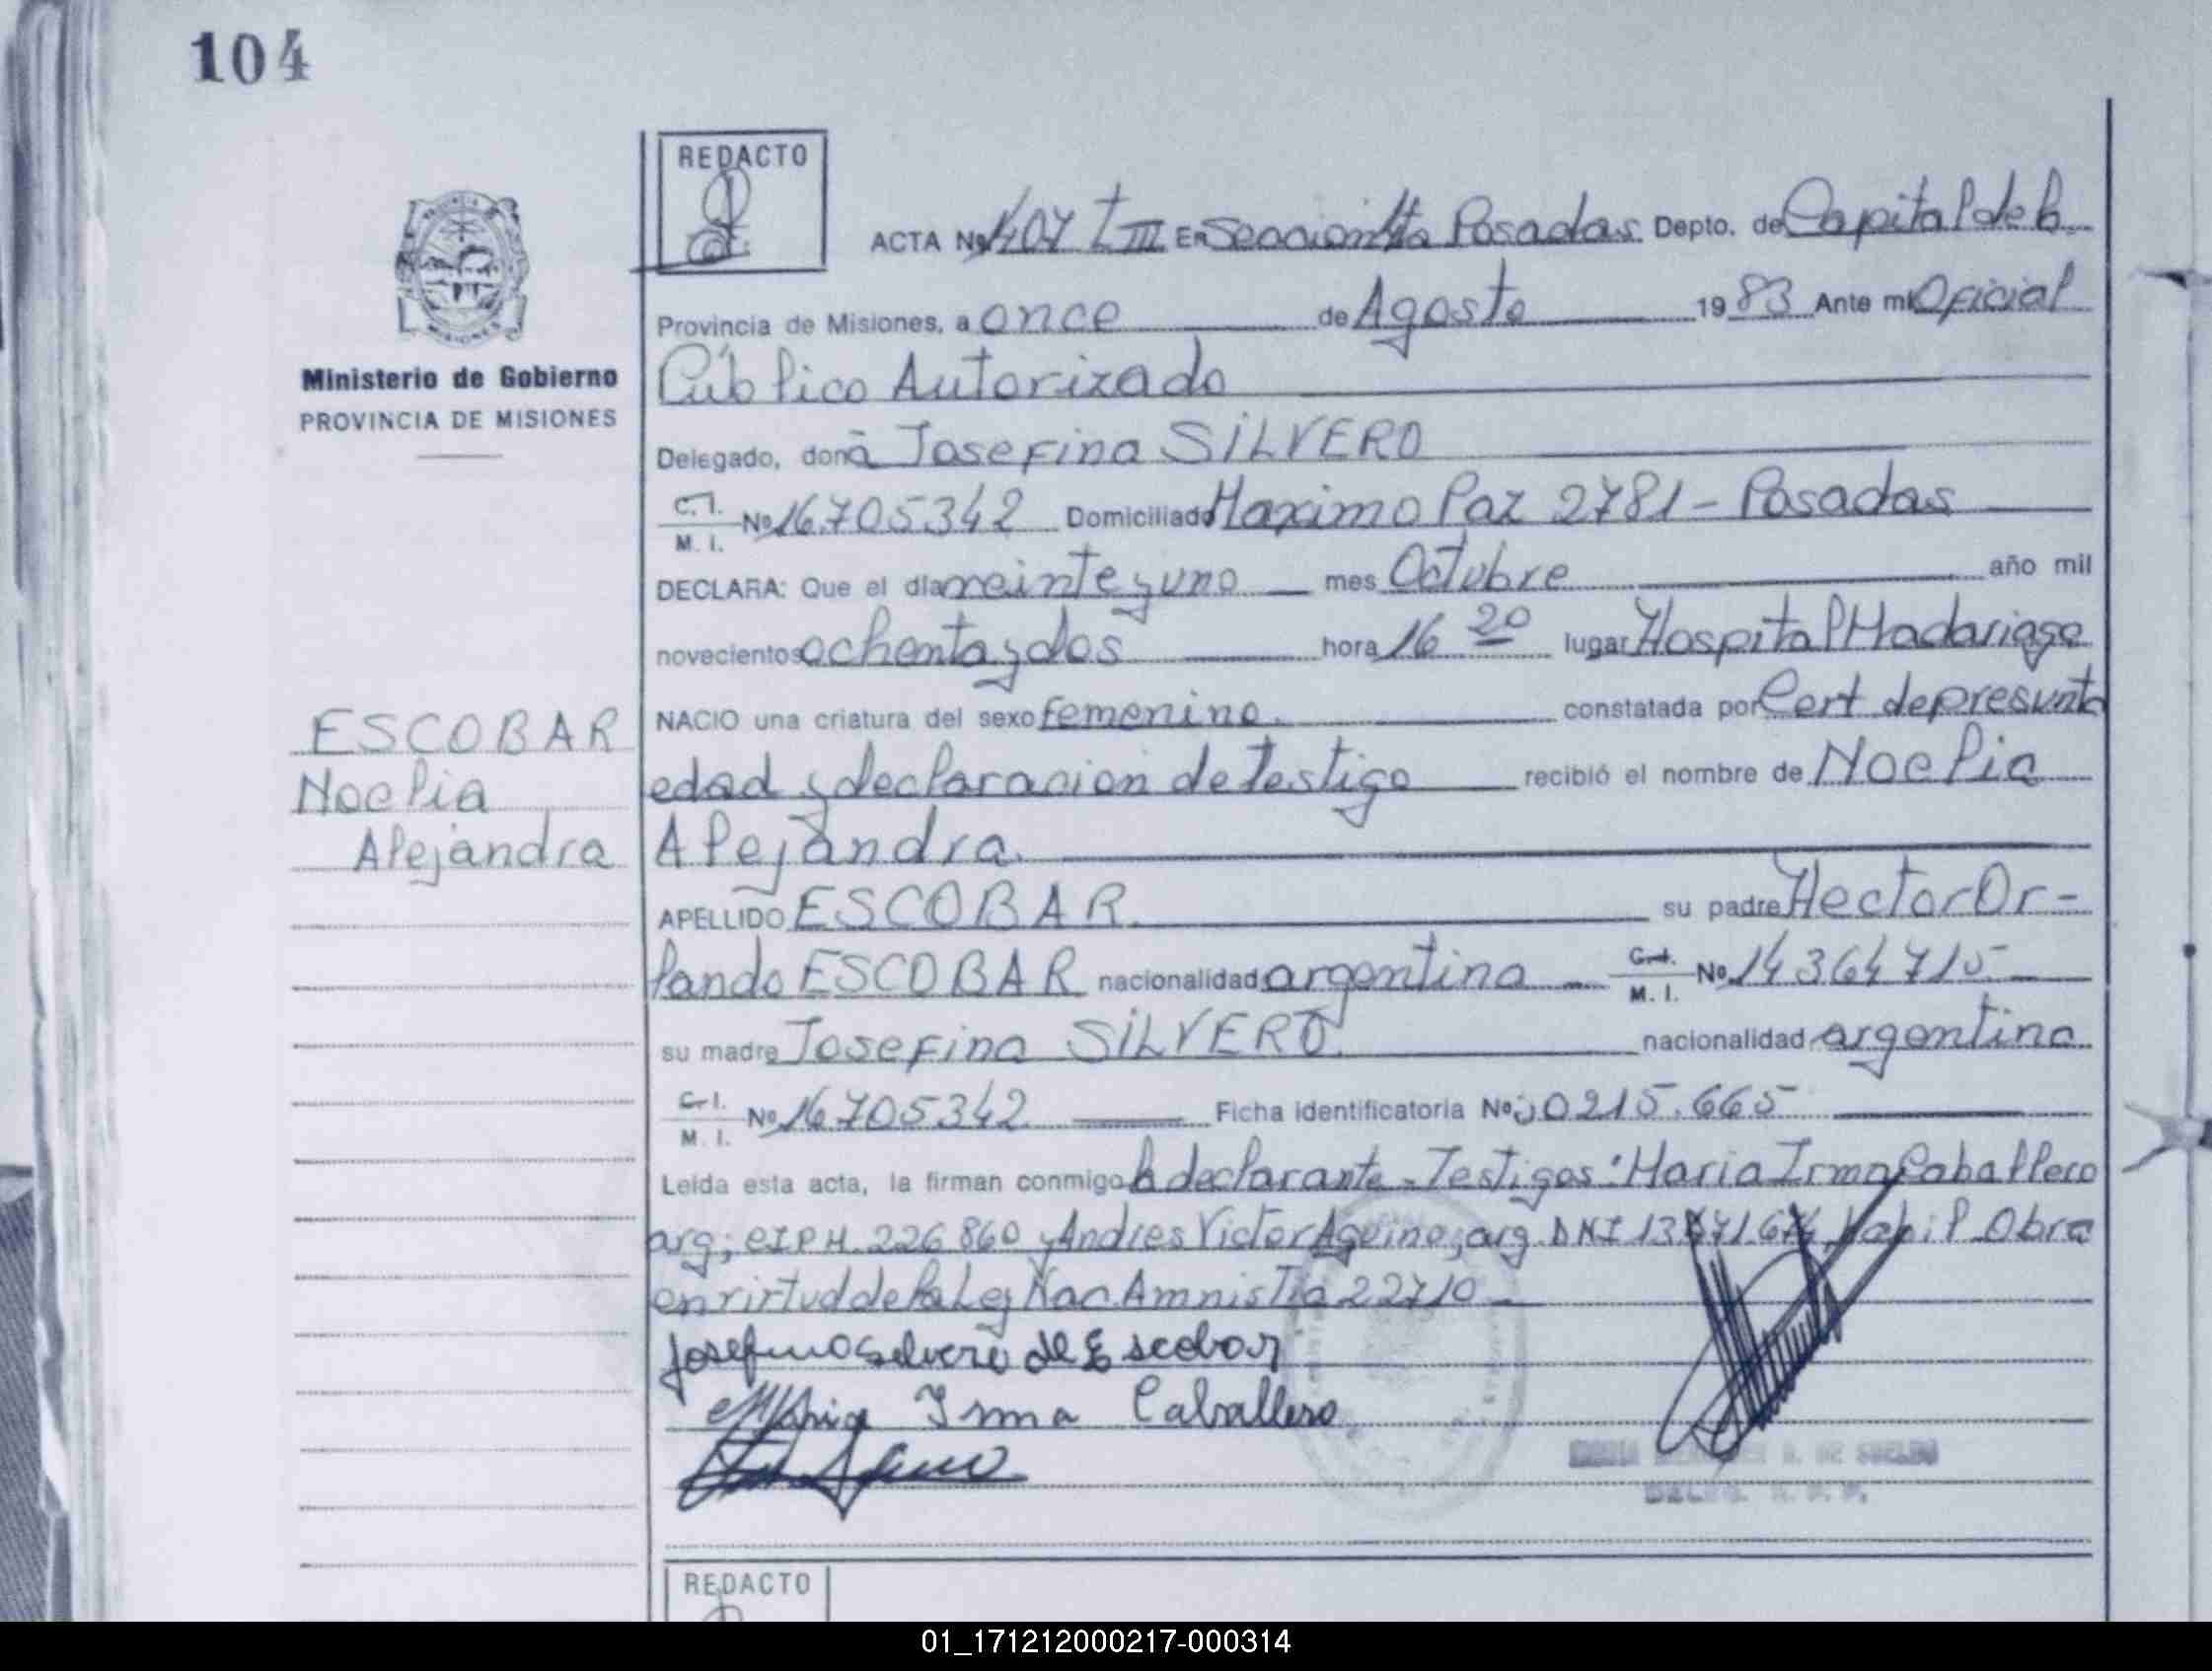 104
REDACTO
ACTA Nº 407 T III En Sección 4ta Posadas Depto. de Capital de la
Provincia de Misiones, a once de Agosto 1983 Ante mi Oficial
Público Autorizado
Ministerio de Gobierno
PROVINCIA DE MISIONES
Delegado, doña Josefina SILVERO
C.I. M.I. Nº 16.705342 Domiciliado Maximo Paz 2781 - Posadas
DECLARA: Que el día veinte y uno mes Octubre año mil
novecientos ochenta y dos hora 16 20 lugar Hospital Madariaga
NACIO una criatura del sexo femenino. constatada por Cert de presunta
edad y declaracion de Testigo recibió el nombre de Noelia
Alejandra.
ESCOBAR
Noelia
Alejandra
APELLIDO ESCOBAR. su padre Hector Or-
lando ESCOBAR nacionalidad argentina C.I. M.I. Nº 14364715
su madre Josefina SILVERO. nacionalidad argentina.
C.I. M.I. Nº 16705342 Ficha identificatoria Nº 0215.665
Leída esta acta, la firman conmigo la declarante - Testigos: Maria Irma Caballero
arg; CIPM. 226860 y Andres Victor Aquino, arg. DNI Habil Obra
en virtud de la Ley Nac. Amnistia 22710
Josefina Silvero de Escobar
Maria Irma Caballero
DE SUELDO
REDACTO
01_171212000217-000314